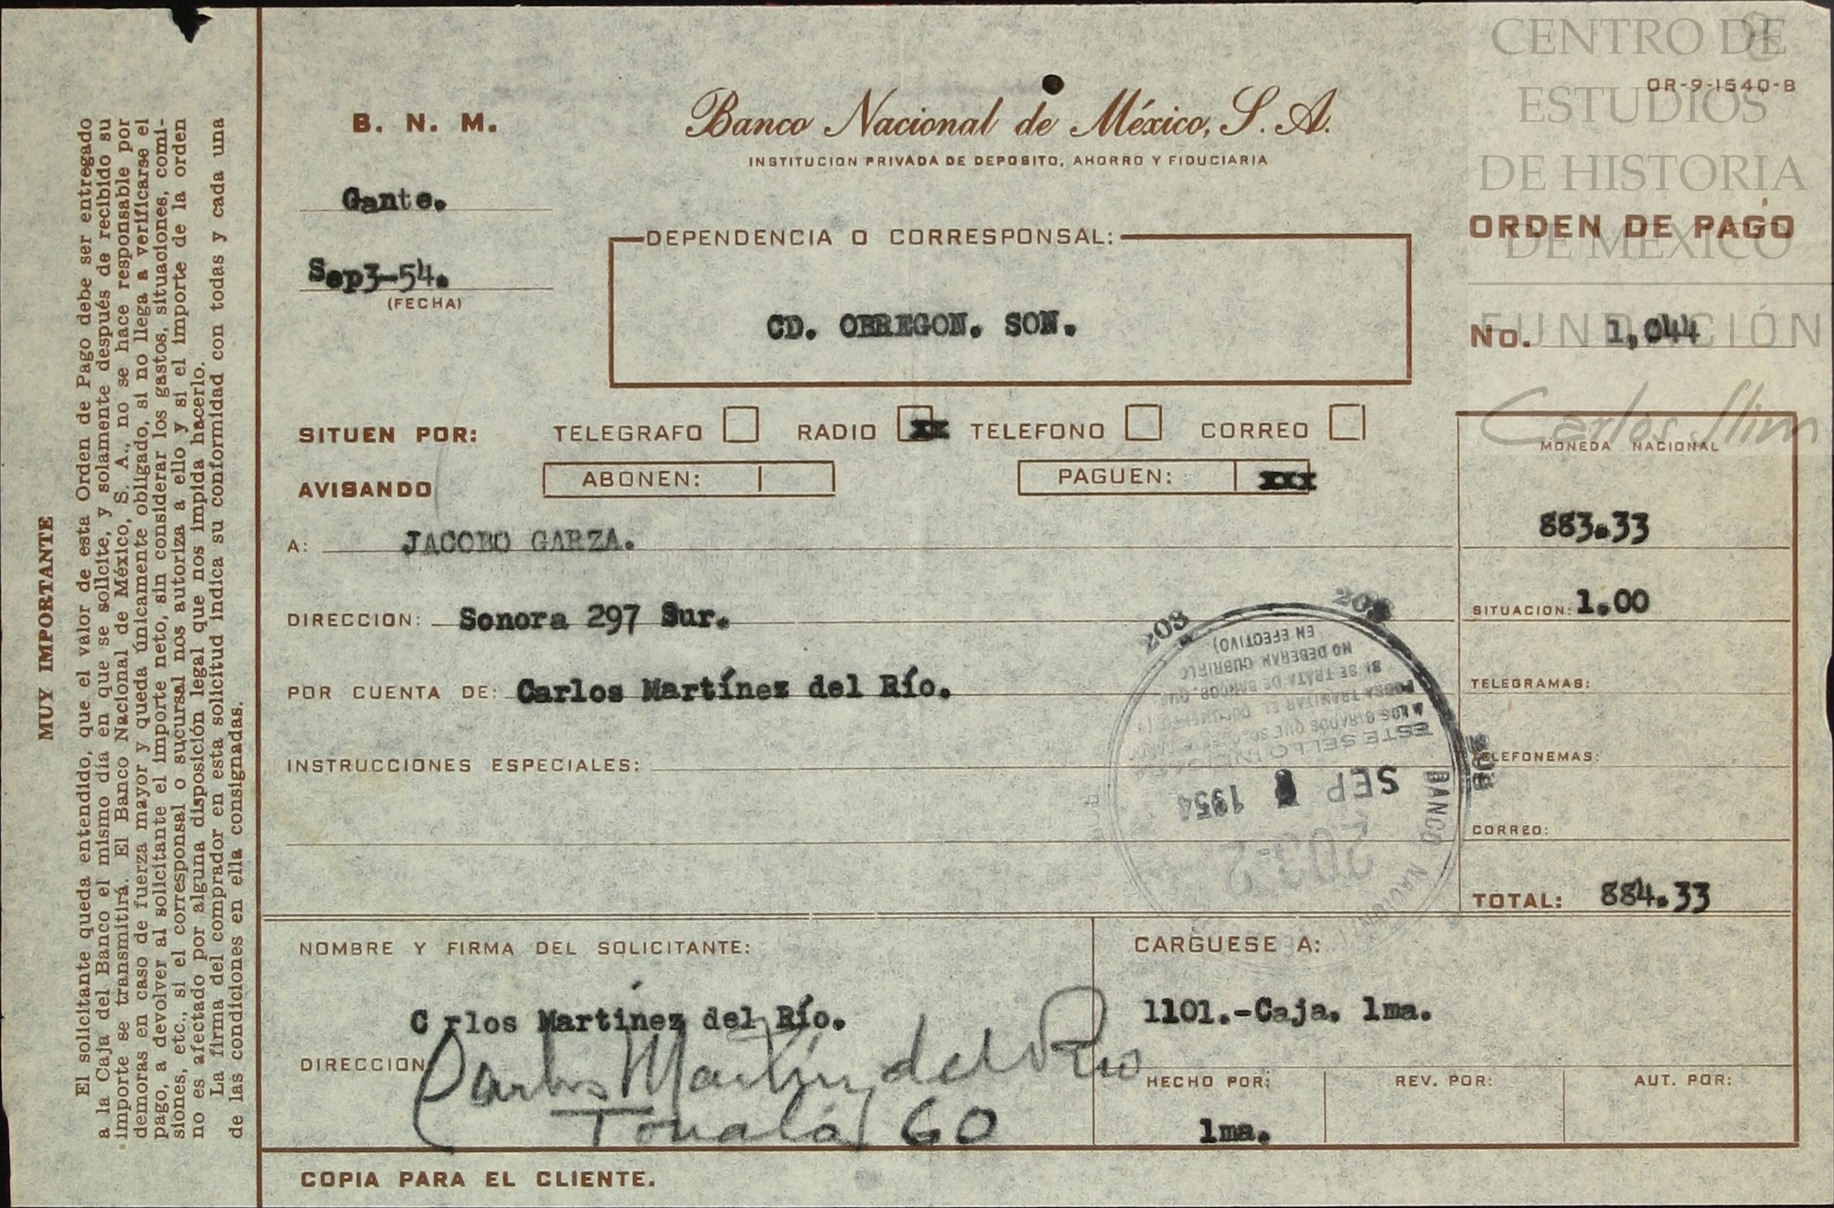 CENTRO DE
ESTUDIOS
DE HISTORIA
DE MÉXICO
FUNDACIÓN
Carlos Slim
OR-9-1540-B
B. N. M.
Banco Nacional de México, S. A.
INSTITUCION PRIVADA DE DEPOSITO, AHORRO Y FIDUCIARIA
Gante.
Sep3-54.
(FECHA)
DEPENDENCIA O CORRESPONSAL:
CD. OBREGON. SON.
ORDEN DE PAGO
No. 1,044
SITUEN POR: TELEGRAFO RADIO xx TELEFONO CORREO
AVISANDO ABONEN: PAGUEN: xxx
MONEDA NACIONAL
883.33
A: JACOBO GARZA.
DIRECCION: Sonora 297 Sur.
SITUACION: 1.00
POR CUENTA DE: Carlos Martínez del Río.
TELEGRAMAS:
INSTRUCCIONES ESPECIALES:
TELEFONEMAS:
CORREO:
TOTAL: 884.33
203
203
203
BANCO NACION
203-2
SEP 1954
ESTE SELLO
A LOS GIRADOS QUE
PODRA TRAMITAR EL DOCUMENTO
SI SE TRATA DE BANCOS QUE
NO DEBERAN CUBRIRLO
EN EFECTIVO)
NOMBRE Y FIRMA DEL SOLICITANTE:
C rlos Martínez del Río.
DIRECCION
Carlos Martínez del Rio
Tonalá 60
CARGUESE A:
1101.-Caja. 1ma.
HECHO POR: REV. POR: AUT. POR:
1ma.
COPIA PARA EL CLIENTE.
MUY IMPORTANTE
El solicitante queda entendido, que el valor de esta Orden de Pago debe ser entregado
a la Caja del Banco el mismo día en que se solicite, y solamente después de recibido su
importe se transmitirá. El Banco Nacional de México, S. A., no se hace responsable por
demoras en caso de fuerza mayor y queda únicamente obligado, si no llega a verificarse el
pago, a devolver al solicitante el importe neto, sin considerar los gastos, situaciones, comi-
siones, etc., si el corresponsal o sucursal nos autoriza a ello y si el importe de la orden
no es afectado por alguna disposición legal que nos impida hacerlo.
La firma del comprador en esta solicitud indica su conformidad con todas y cada una
de las condiciones en ella consignadas.